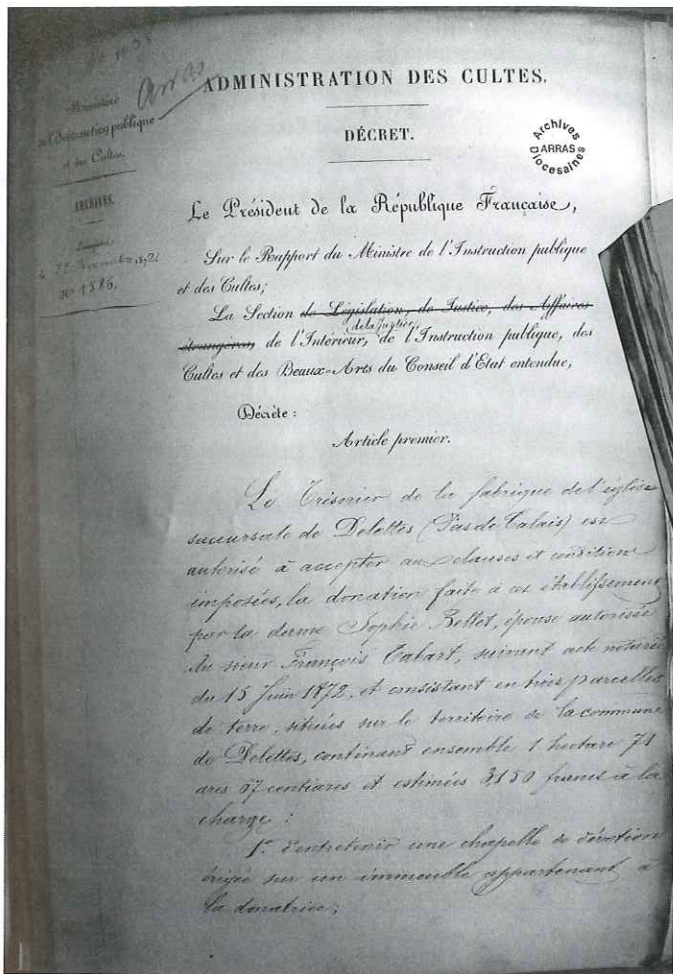 Arras
Ministère
de l'Instruction publique
et des Cultes.
ARCHIVES.
n° 1886.
ADMINISTRATION DES CULTES.
DÉCRET.
Archives
Diocesaines
ARRAS
Le Président de la République Française,
Sur le Rapport du Ministre de l'Instruction publique
et des Cultes;
La Section de Législation, de Justice, des Affaires
étrangères, de l'Intérieur, de la Justice, de l'Instruction publique, des
Cultes et des Beaux-Arts du Conseil d'Etat entendue,
Décrète :
Article premier.
Le Trésorier de la fabrique de l'église
succursale de Delettes (Pas de Calais) est
autorisé à accepter aux clauses et conditions
imposées, la donation faite à cet établissement
par la dame Sophie Bottet, épouse autorisée
du sieur François Cabart, suivant acte notarié
du 15 Juin 1872, et consistant en trois parcelles
de terre, situées sur le territoire de la commune
de Delettes, contenant ensemble 1 hectare 71
ares 57 centiares et estimées 3,150 francs à la
charge :
1° d'entretenir une chapelle de dévotion
érigée sur un immeuble appartenant à
la donatrice;